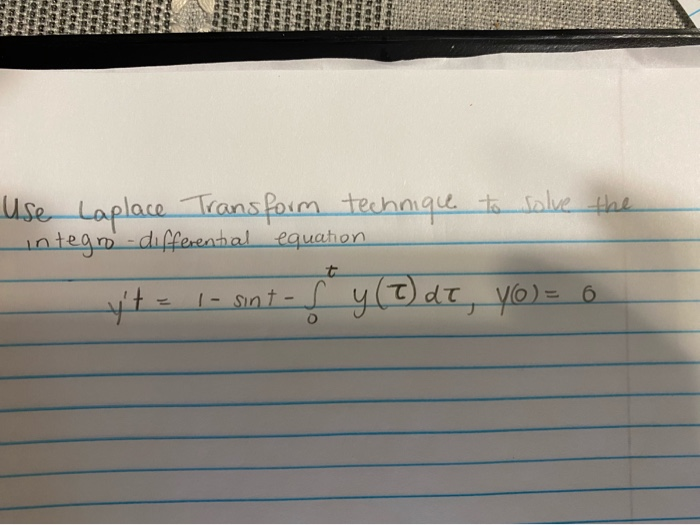 Use Laplace Transform technique to solve the
integro-differential equation
y't = 1 - sint - ∫₀ᵗ y(τ)dτ, y(0) = 0